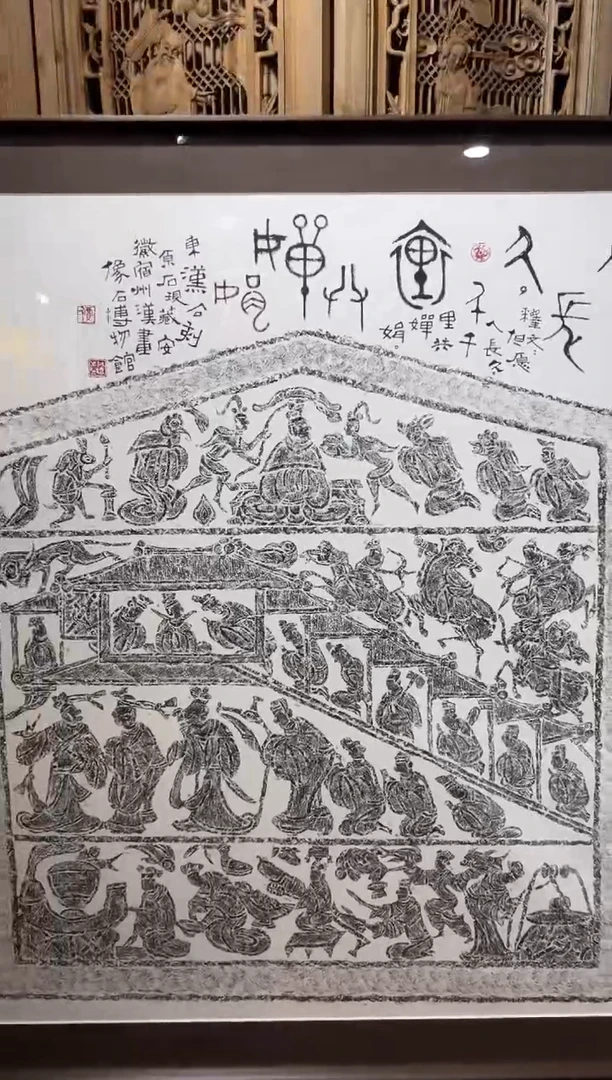 長久千里共嬋娟
釋文：
但願
人長久
千
里共
嬋
娟。
東漢石刻
原石現藏安
徽宿州漢畫
像石博物館